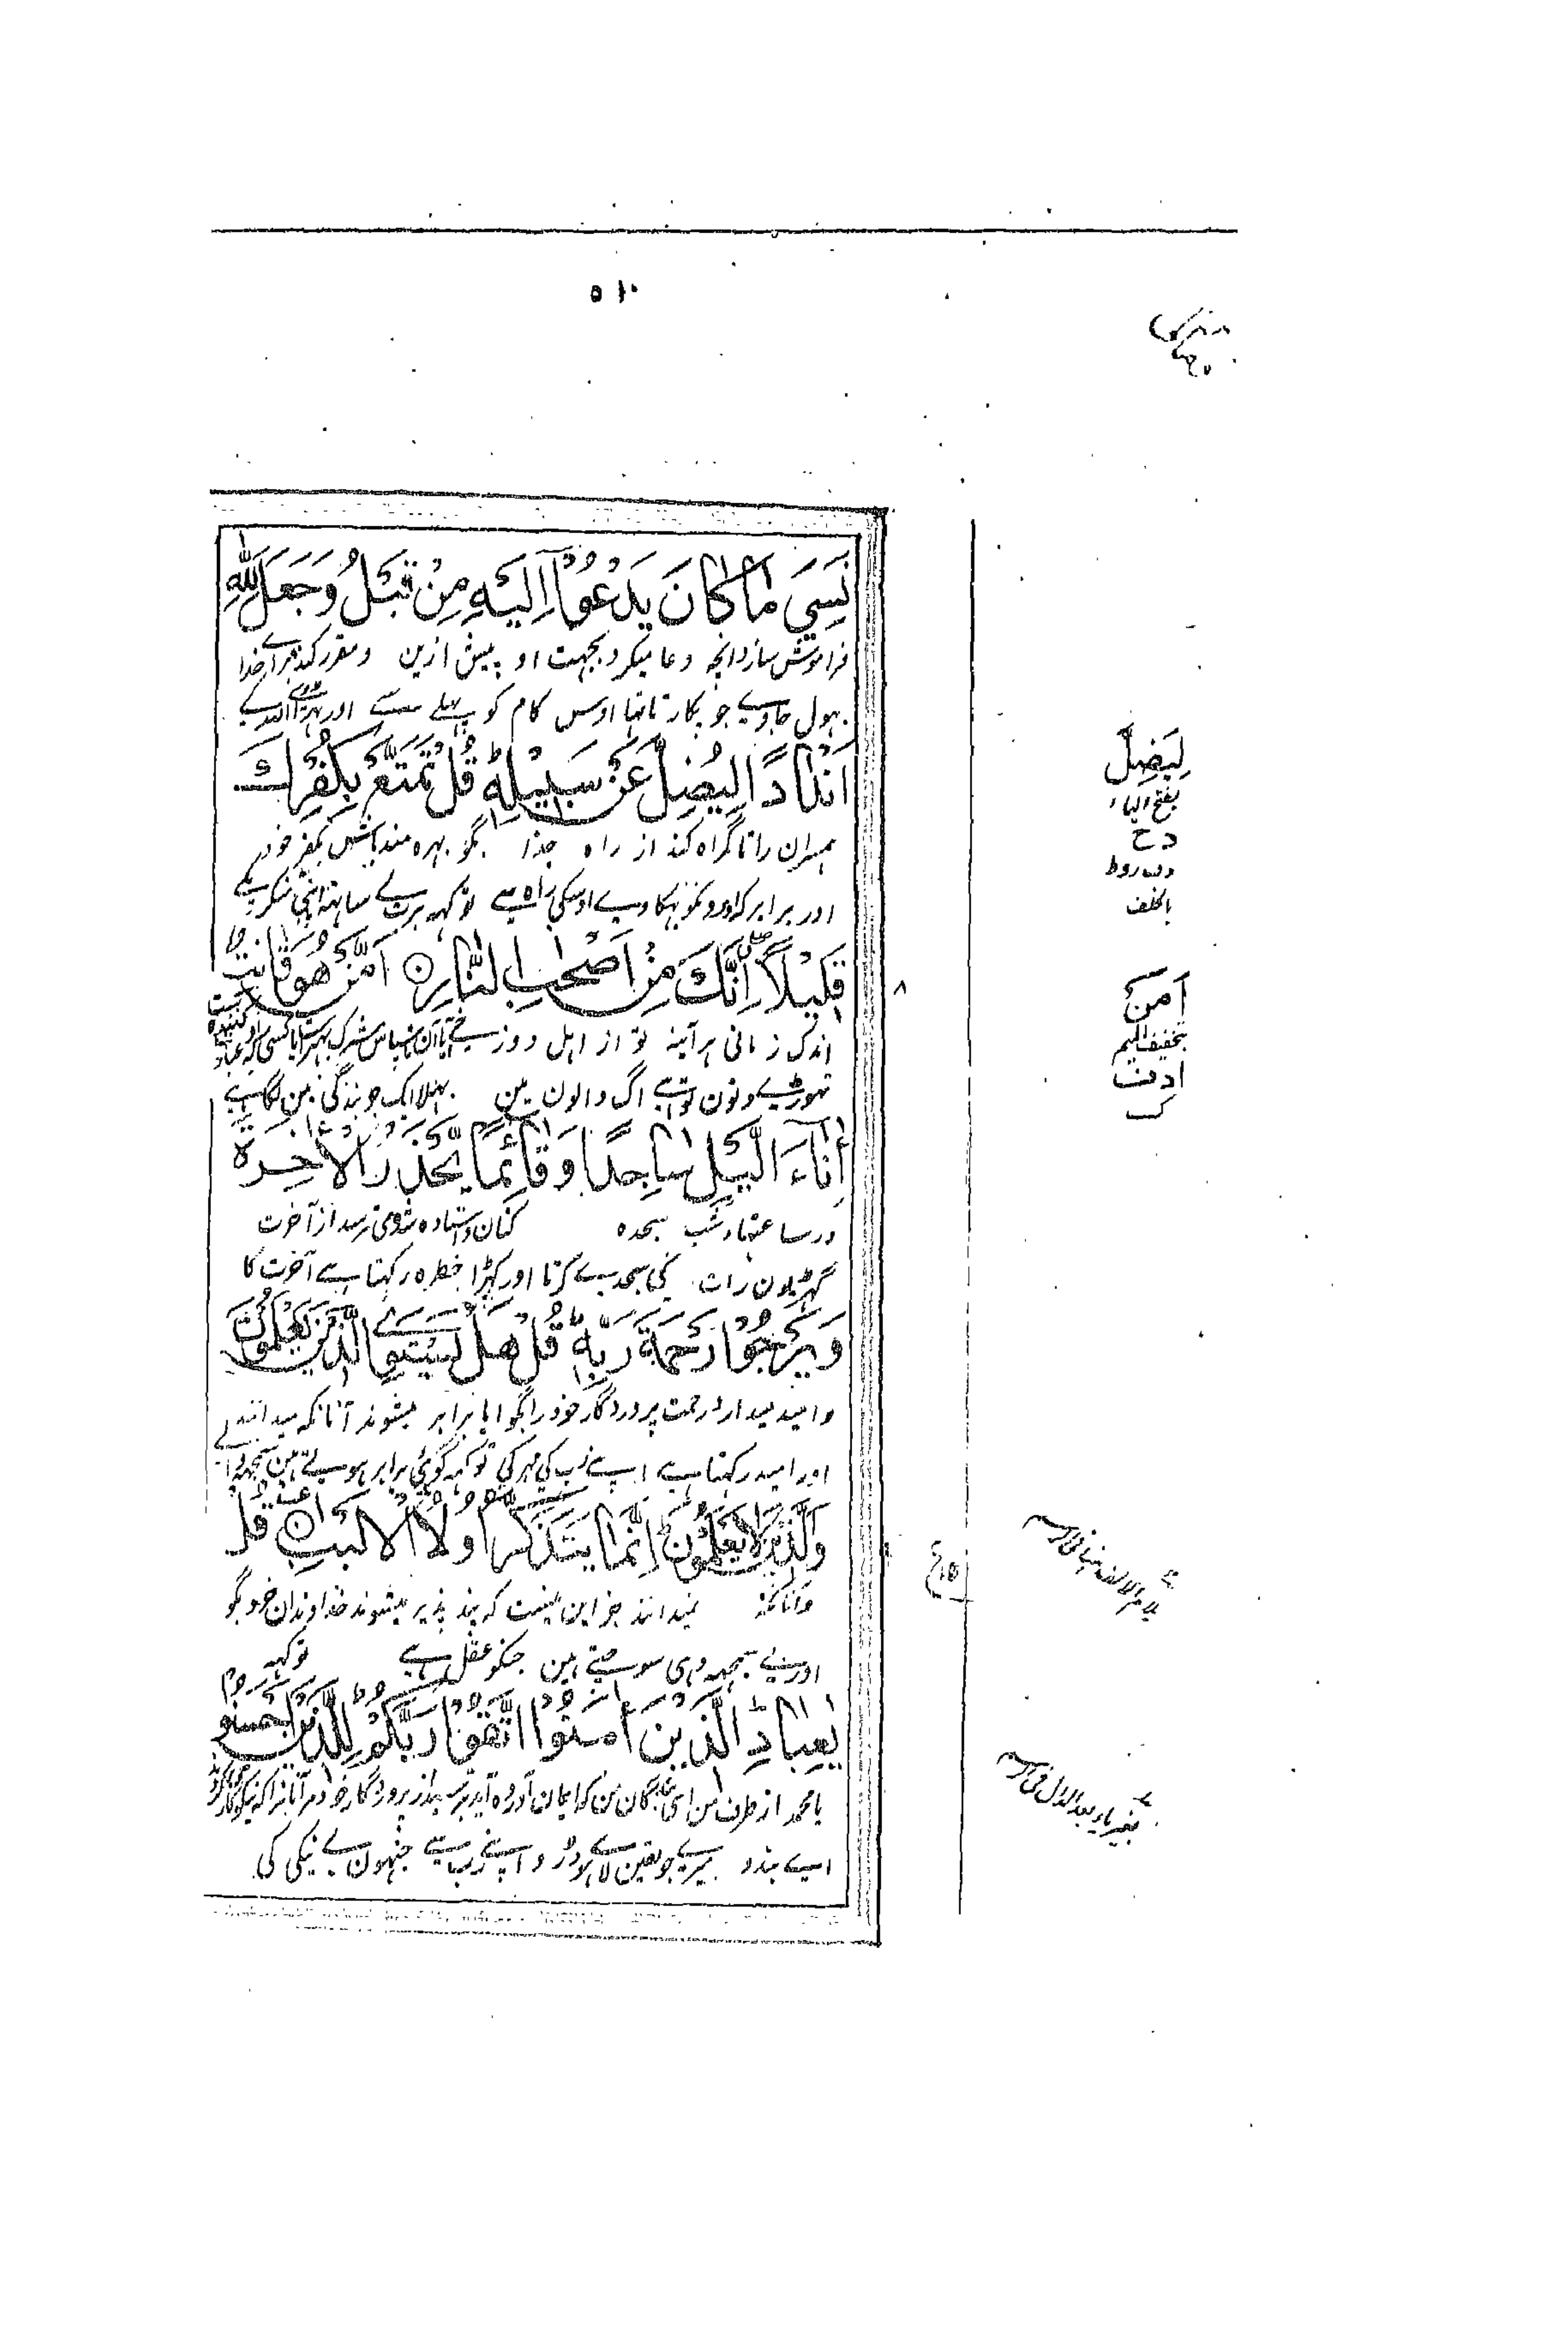 ٥١٠
نَسِيَ مَا كَانَ يَدْعُوْٓا اِلَيْهِ مِنْ قَبْلُ وَجَعَلَ لِلّٰهِ
فراموش سازد آنچه دعا میکرد بجهت او پیش ازین ومقرر کند برای خدا
بهول جاوے جو پکارتا تها اوس کام کو پہلے سے اور
اَنْدَادًا لِّيُضِلَّ عَنْ سَبِيْلِهٖ ؕ قُلْ تَمَتَّعْ بِكُفْرِكَ
همسران را تا گمراه کند از راه خدا بگو بهره مند باش بکفر خود
اور برابر کہ اورونکو بہکاوے اوسکی راہ سے تو کہہ برت لے ساتهه اپنی منکری کے
قَلِيْلًا ۖ اِنَّكَ مِنْ اَصْحٰبِ النَّارِ ۝ اَمَّنْ هُوَ قَانِتٌ
اندک زمانی هر آینه تو از اهل دوزخی
تهوڑے دنون تو ہے آگ والون مین بهلا ایک جو بندگی مین لگا ہے
اٰنَآءَ الَّيْلِ سَاجِدًا وَّقَآئِمًا يَّحْذَرُ الْاٰخِرَةَ
در ساعتهاء شب سجده کنان و استاده شده می ترسد از آخرت
گهڑیون رات کی سجدے کرتا اور کهڑا خطره رکهتا ہے آخرت کا
وَيَرْجُوْا رَحْمَةَ رَبِّهٖ ؕ قُلْ هَلْ يَسْتَوِي الَّذِيْنَ يَعْلَمُوْنَ
وامید میدارد رحمت پروردگار خود را بگو آیا برابر میشوند آنانکه میدانند
اور امید رکهتا ہے اپنے رب کی مہر کی تو کہہ کوئی برابر ہوتے ہین سمجهه والے
وَالَّذِيْنَ لَا يَعْلَمُوْنَ ؕ اِنَّمَا يَتَذَكَّرُ اُولُوا الْاَلْبَابِ ۝ قُلْ
و آنانکه نمیدانند جز این نیست که پند پذیر میشوند خداوندان خرد بگو
اور بے سمجهه وہی سوچتے ہین جنکو عقل ہے تو کہہ
يٰعِبَادِ الَّذِيْنَ اٰمَنُوا اتَّقُوْا رَبَّكُمْ ؕ لِلَّذِيْنَ اَحْسَنُوْا
یا محمد از طرف من ای بندگان من که ایمان آورده آید بترسید از پروردگار خود مر آنانرا که نیکوکاری کردند
اے بندو میرے جو یقین لائے ہو ڈرو اپنے رب سے جنہون نے نیکی کی
لِيَضِلَّ
بفتح الیاء
د ح
بالخلف
٨
اَمَنْ
بتخفیف المیم
ا د ف
ک
١٥